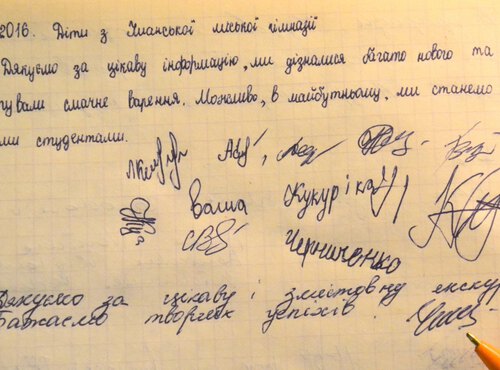 2016. Діти з Уманської міської гімназії
Дякуємо за цікаву інформацію, ми дізналися багато нового та
тували смачне варення. Можливо, в майбутньому, ми станемо
ми студентами.
Ваша Кукуріка
Черниченко
Дякуємо за цікаву і змістовну екскур
Бажаємо творчих успіхів.